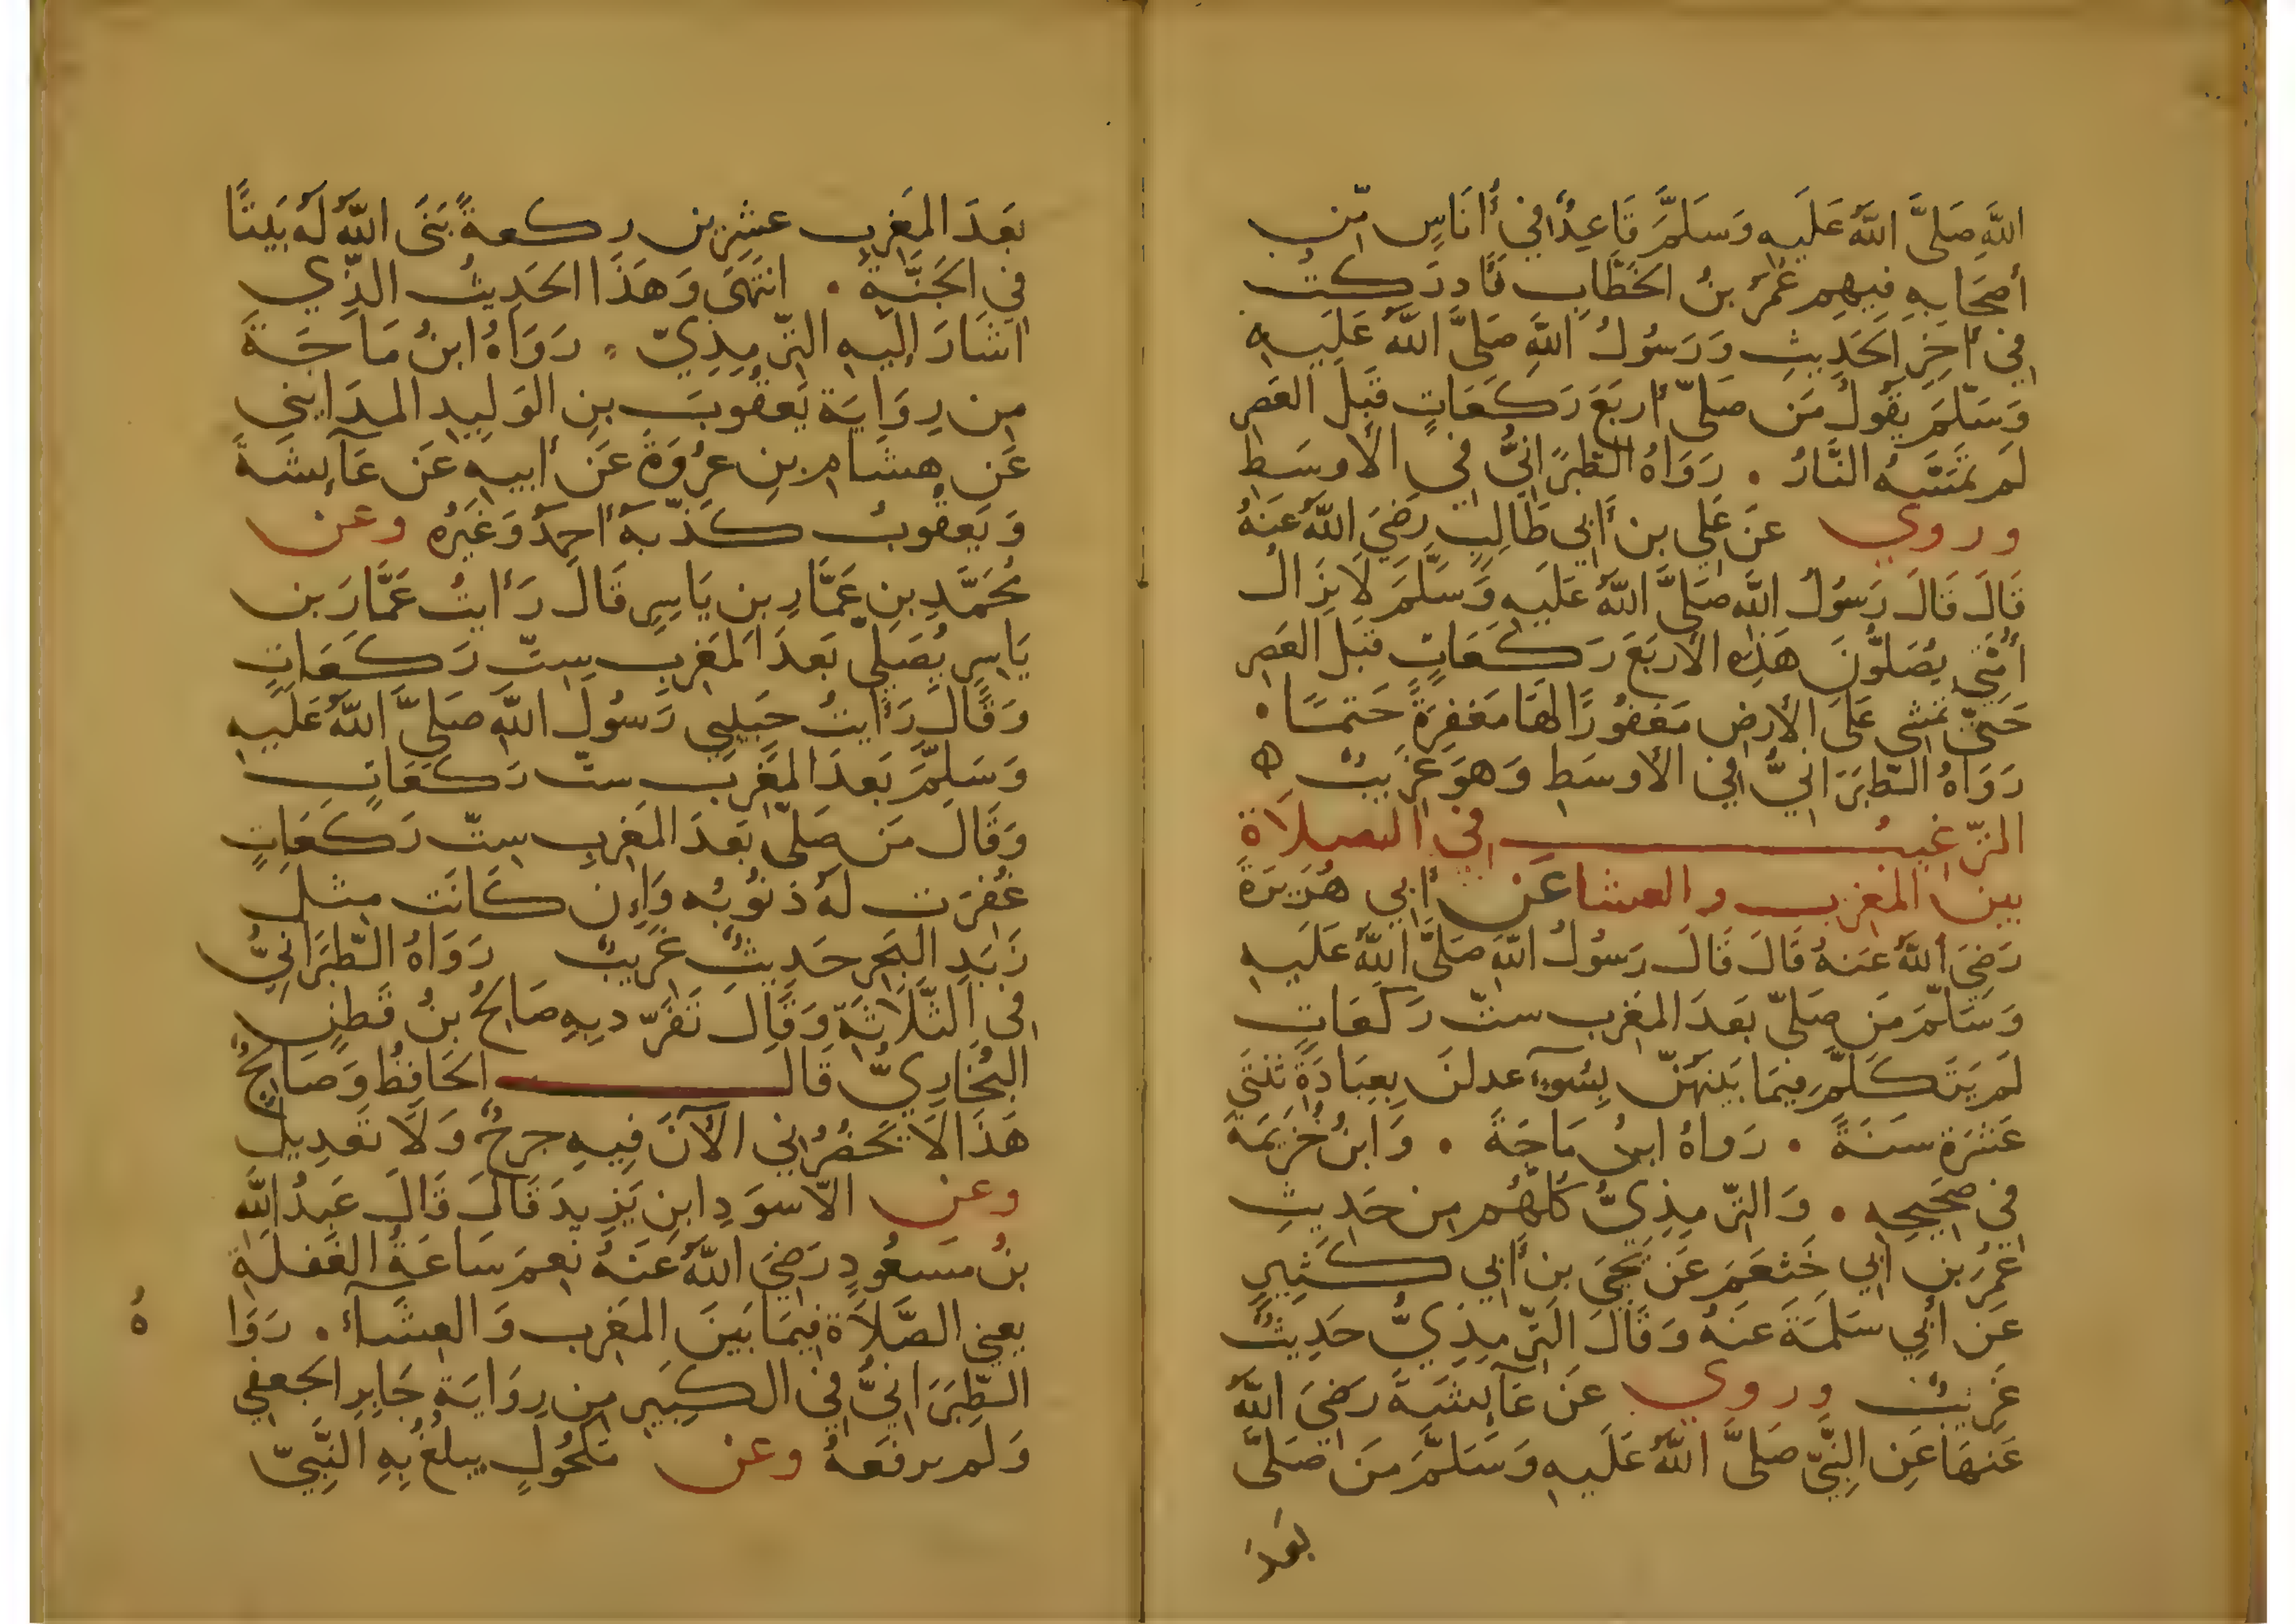 اللَّهِ صَلَّى اللَّهُ عَلَيهِ وَسَلَّمَ قَاعِدًا فِي أُنَاسٍ مِّن
أصحَابِهِ فِيهِم عُمَرُ بنُ الخَطَّابِ فَأدرَكتُ
فِي آخِرِ الحَدِيثِ وَرَسُولُ اللَّهِ صَلَّى اللَّهُ عَلَيهِ
وَسَلَّمَ يَقُولُ مَن صَلَّى أربَعَ رَكَعَاتٍ قَبلَ العَصرِ
لَم تَمَسَّهُ النَّارُ . رَوَاهُ الطَّبَرَانِيُّ فِي الأوسَطِ
وروي عَن عَلِي بن أَبِي طَالِبٍ رَضِيَ اللَّهُ عَنهُ
قَالَ قَالَ رَسُولُ اللَّهِ صَلَّى اللَّهُ عَلَيهِ وَسَلَّمَ لَا يَزَالُ
أُمَّتِي يُصَلُّونَ هَذِهِ الأربَعَ رَكَعَاتٍ قَبلَ العَصرِ
حَتَّى تَمشِي عَلَى الأرضِ مَغفُورًا لهَا مَغفِرَةً حَتمًا .
رَوَاهُ الطَّبَرَانِيُّ فِي الأوسَطِ وَهوَ غَرِيبٌ ه
الترغيب في الصلاة
بين المغرب والعشا عَن أبِي هُرَيرَةَ
رَضِيَ اللَّهُ عَنهُ قَالَ قَالَ رَسُولُ اللَّهِ صَلَّى اللَّهُ عَلَيهِ
وَسَلَّمَ مَن صَلَّى بَعدَ المَغرِبِ ستّ رَكَعَاتٍ
لَم يَتَكَلَّم فِيمَا بَينَهُنَّ بِسُوءٍ عدلنَ بِعِبَادَةِ ثنتَي
عَشرَةَ سَنَةً . رَوَاهُ ابنُ مَاجَةَ . وَابنُ خُزَيمَةَ
فِي صَحِيحِهِ . وَالتِّرمِذِيُّ كُلُّهُم مِن حَدِيثِ
عُمَرَ بن أبِي خَثعَمَ عَن يَحيَى بن أَبِي كَثِيرٍ
عَن أبِي سَلَمَةَ عَنهُ وَقَالَ التِّرمِذِيُّ حَدِيثٌ
غَرِيبٌ وروي عَن عَآئِشَةَ رَضِيَ اللَّهُ
عَنهَا عَنِ النَّبِيِّ صَلَّى اللَّهُ عَلَيهِ وَسَلَّمَ مَن صَلَّى
بَعدَ
بَعدَ المَغرِبِ عشرِين ركعةً بَنَى اللَّهُ لَهُ بَيتًا
فِي الجَنَّةِ . انتَهَى وَهَذَا الحَدِيثُ الَّذِي
اشَارَ إلَيهِ التِّرمِذِيّ . رَوَاهُ ابنُ مَاجَةَ
مِن رِوَايَةِ يَعقُوبَ بنِ الوَلِيدِ المدَايِنِي
عَن هِشَامِ بنِ عُروَةَ عَن أبيهِ عَن عَآئِشَةَ
وَيَعقُوبُ كَذَّبَهُ أحمَدُ وَغَيرُه وعن
مُحَمَّدِ بنِ عَمَّارِ بن يَاسِرٍ قَالَ رَأيتُ عَمَّارَ بن
يَاسِرٍ يُصَلِّي بَعدَ المَغرِبِ سِتّ رَكَعَاتٍ
وَقَالَ رَأيتُ حَبِيبِي رَسُولَ اللَّهِ صَلَّى اللَّهُ عَلَيهِ
وَسَلَّمَ بَعدَ المَغرِبِ ستّ رَكَعَاتٍ
وَقَالَ مَن صَلَّى بَعدَ المَغرِبِ سِتّ رَكَعَاتٍ
غُفِرَت لَهُ ذنُوبُه وَإن كَانَت مِثلَ
زَبَدِ البَحرِ حَدِيثٌ غَرِيبٌ رَوَاهُ الطَّبَرَانِيُّ
فِي الثَّلَاثَةِ وَقَالَ تَفَرَّد بِهِ صَالِحُ بنُ قَطَنٍ
البُخَارِيُّ قَالَ الحَافِظُ وَصَالِحٌ
هَذَا لَا يَحضُرُنِي الآنَ فِيهِ جرحٌ وَلَا تَعدِيلٌ
وعن الأسوَدِ ابنِ يَزِيدَ قَالَ قَالَ عَبدُ اللَّهِ
بنُ مَسعُودٍ رَضِيَ اللَّهُ عَنهُ نِعمَ سَاعَةُ الغَفلَةِ
يعنِي الصَّلَاةَ فِيمَا بَينَ المَغرِبِ وَالعِشَآءِ . رَوَا
هُ
الطَّبَرَانِيُّ فِي الكَبِيرِ مِن رِوَايَةِ جَابِرِ الجعفِي
وَلَم يرفَعهُ وعن مَكحُولٍ يبلُغُ بِهِ النَّبِيَّ